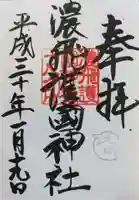 奉拝
濃飛護國神社
平成三十年一月十九日